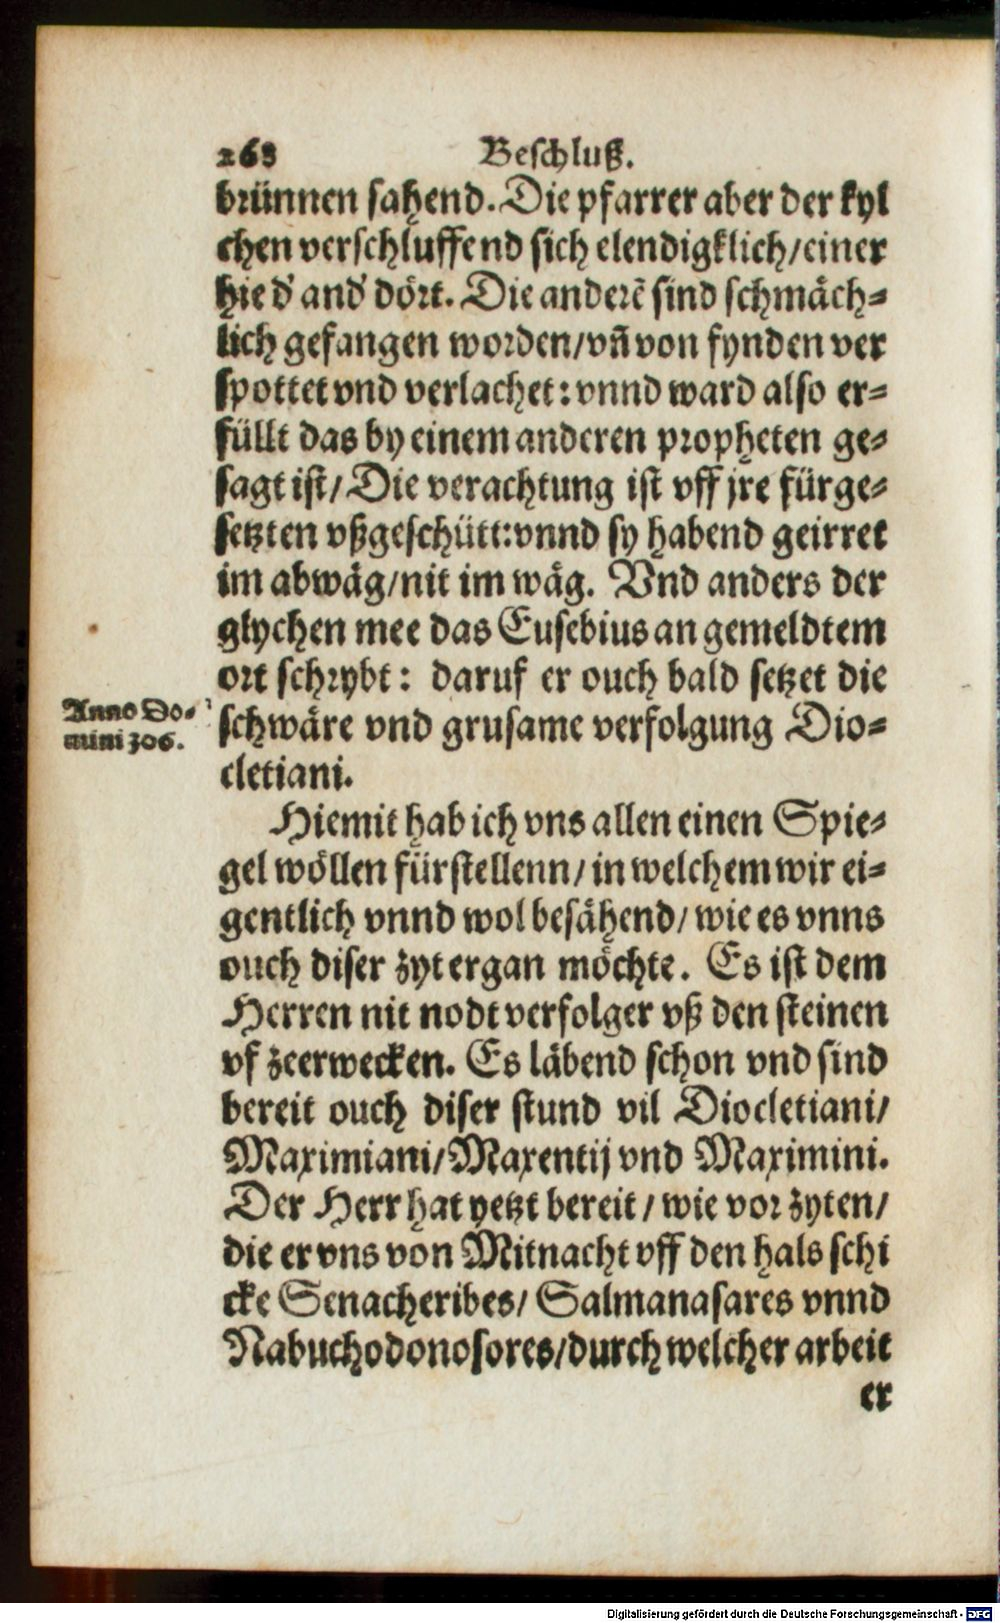 268 Beschluß.
brünnen sahend. Die pfarrer aber der kyl
chen verschluffend sich elendigklich/einer
hie d' and' dört. Die anderẽ sind schmäch⸗
lich gefangen worden/vñ von fynden ver
spottet vnd verlachet: vnnd ward also er⸗
füllt das by einem anderen propheten ge⸗
sagt ist/ Die verachtung ist vff jre fürge⸗
setzten vßgeschütt: vnnd sy habend geirret
im abwäg/nit im wäg. Vnd anders der
glychen mee das Eusebius an gemeldtem
ort schrybt: daruf er ouch bald setzet die
Anno Do⸗
mini 306.
schwäre vnd grusame verfolgung Dio⸗
cletiani.
Hiemit hab ich vns allen einen Spie⸗
gel wöllen fürstellenn/ in welchem wir ei⸗
gentlich vnnd wol besähend/ wie es vnns
ouch diser zyt ergan möchte. Es ist dem
Herren nit nodt verfolger vß den steinen
vf zeerwecken. Es läbend schon vnd sind
bereit ouch diser stund vil Diocletiani/
Maximiani/Maxentij vnd Maximini.
Der Herr hat yetzt bereit/ wie vor zyten/
die er vns von Mitnacht vff den hals schi
cke Senacheribes/ Salmanasares vnnd
Nabuchodonosores/durch welcher arbeit
er
Digitalisierung gefördert durch die Deutsche Forschungsgemeinschaft - DFG